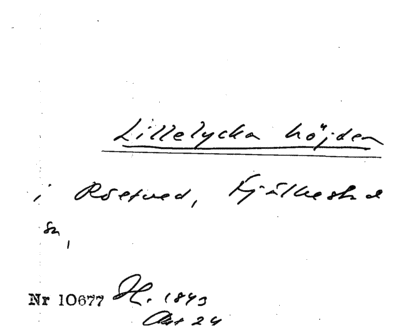 Lillelycka höjden
i Röetved, Fjälkestad
sn,
Nr 10677 H. 1843
Akt 24